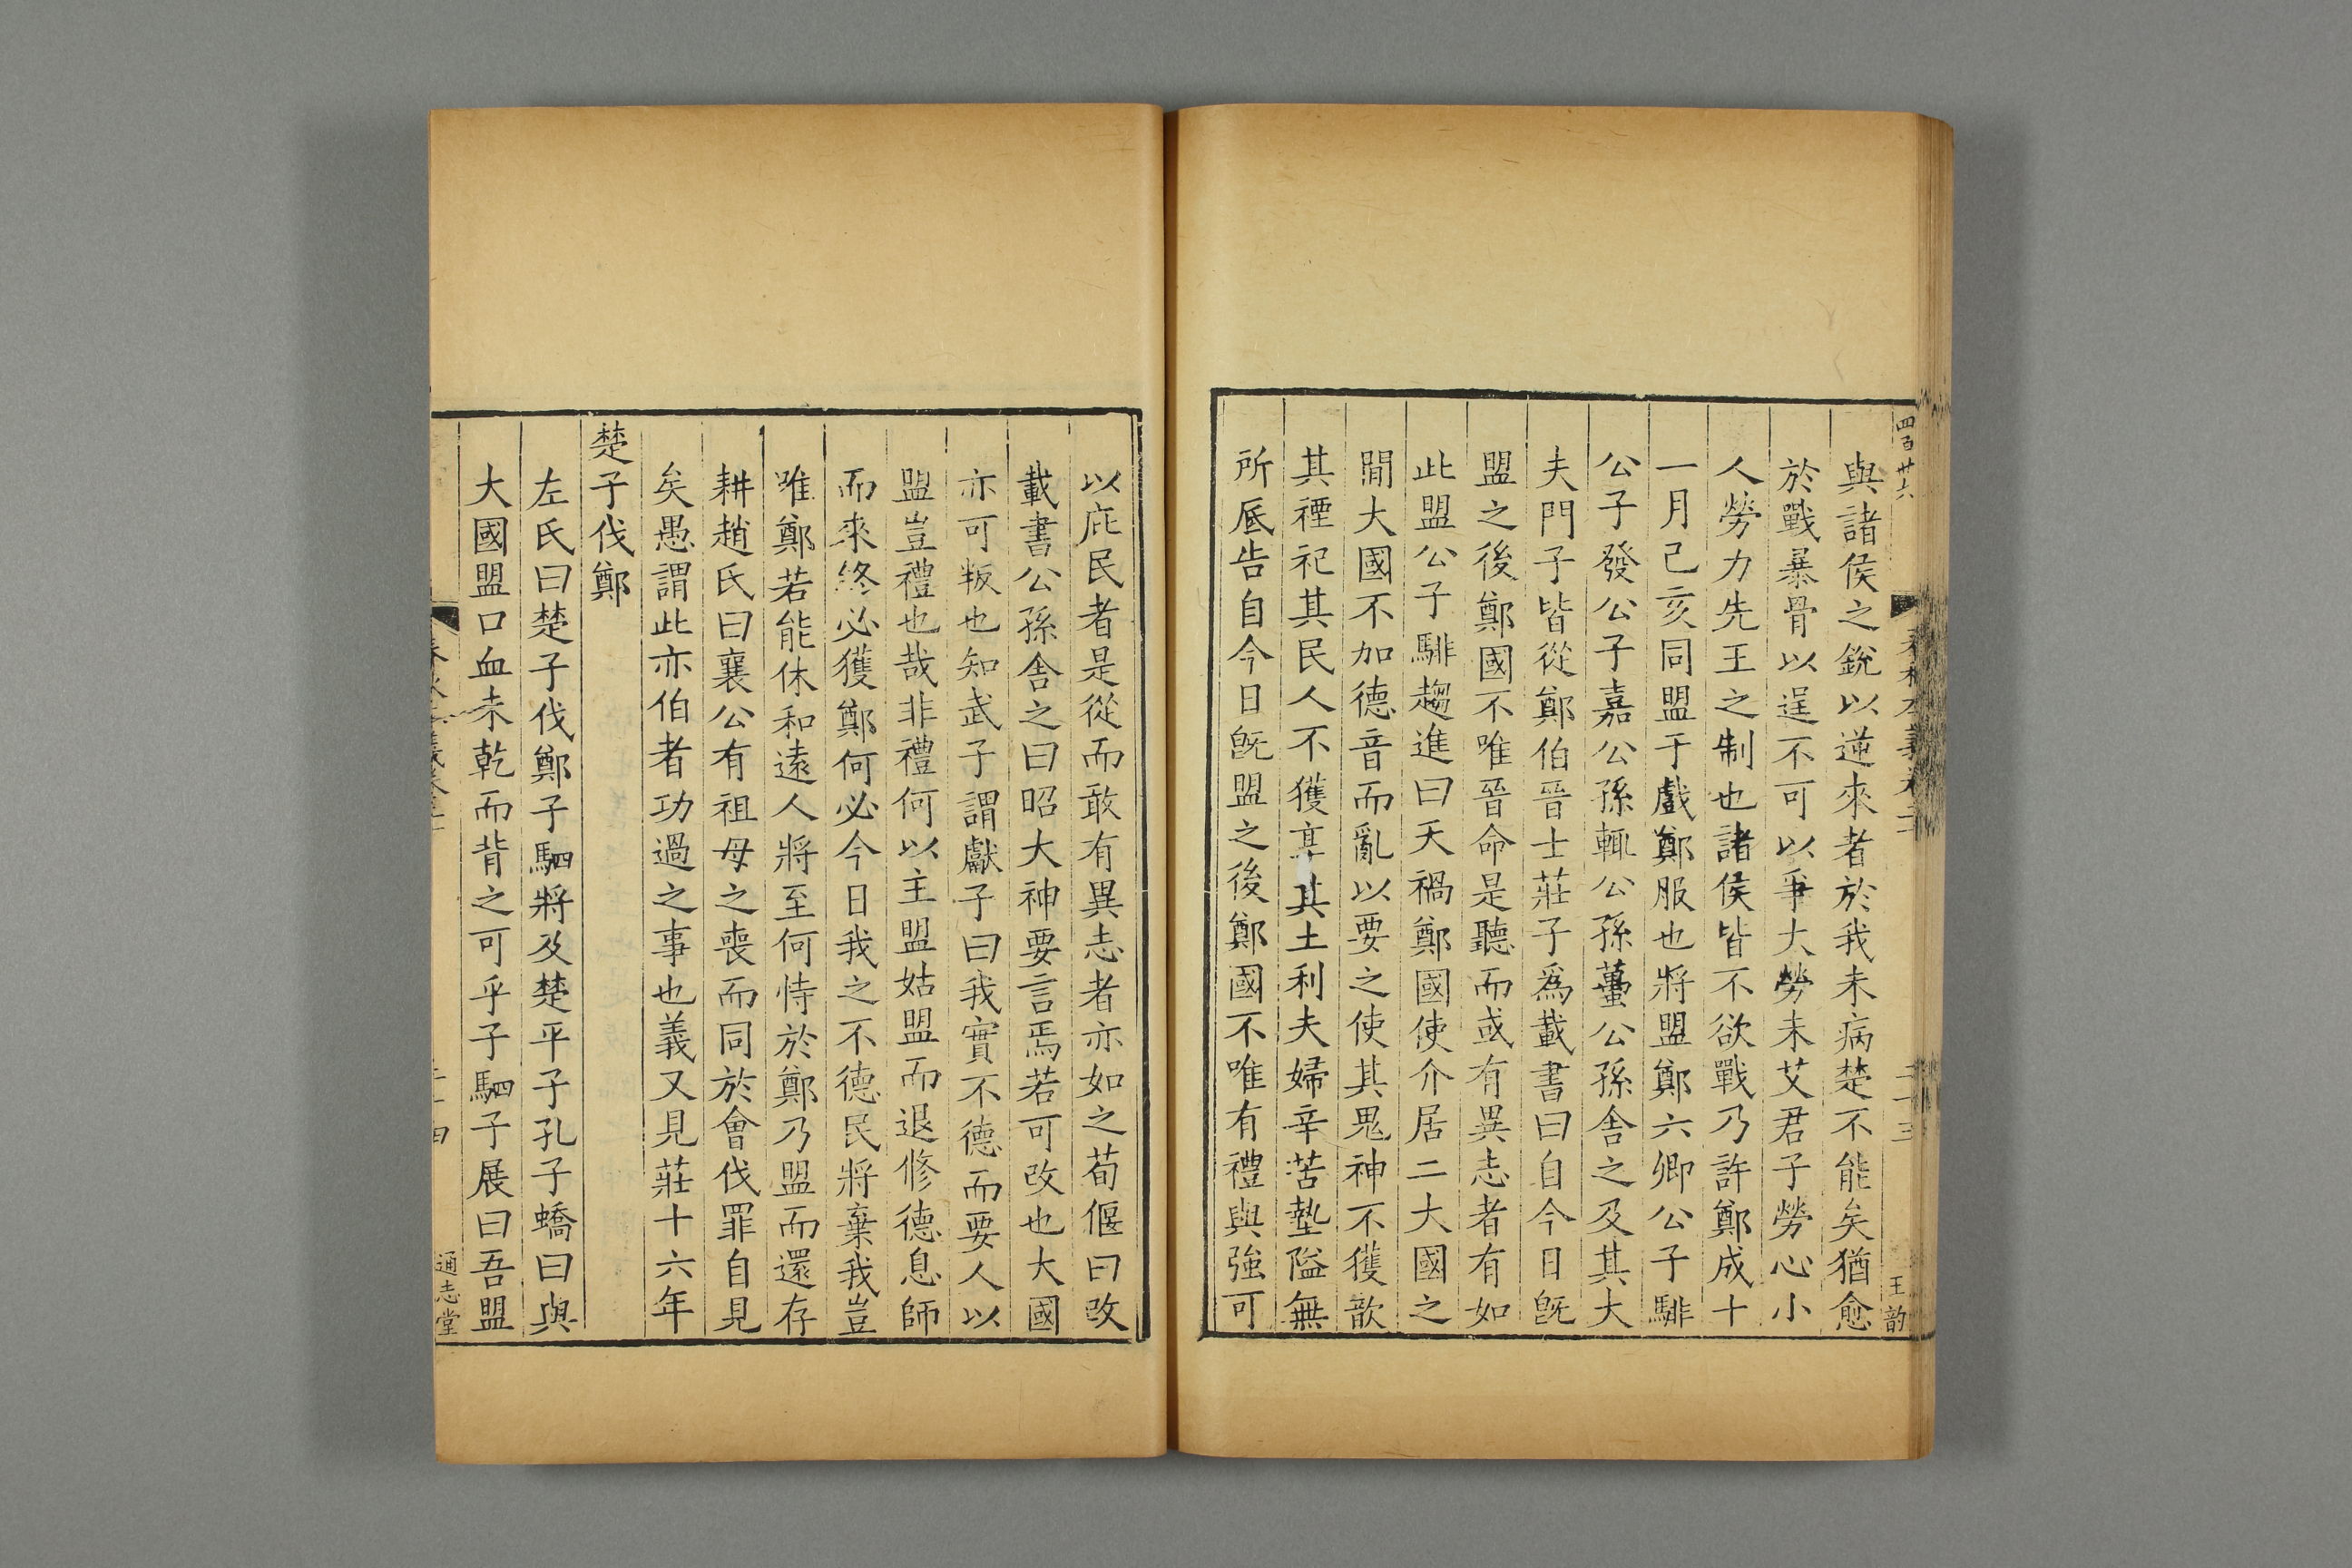 四百卄六
與諸侯之銳以逆來者於我未病楚不能矣猶愈
於戰暴骨以逞不可以爭大勞未艾君子勞心小
人勞力先王之制也諸侯皆不欲戰乃許鄭成十
一月己亥同盟于戲鄭服也將盟鄭六卿公子騑
公子發公子嘉公孫輒公孫蠆公孫舍之及其大
夫門子皆從鄭伯晉士莊子爲載書曰自今日旣
盟之後鄭國不唯晉命是聽而或有異志者有如
此盟公子騑趨進曰天禍鄭國使介居二大國之
閒大國不加德音而亂以要之使其鬼神不獲歆
其禋祀其民人不獲享其土利夫婦辛苦墊隘無
所厎告自今日旣盟之後鄭國不唯有禮與強可
二十三
王韵
以庇民者是從而敢有異志者亦如之荀偃曰改
載書公孫舍之曰昭大神要言焉若可改也大國
亦可叛也知武子謂獻子曰我實不德而要人以
盟豈禮也哉非禮何以主盟姑盟而退修德息師
而來終必獲鄭何必今日我之不德民將棄我豈
唯鄭若能休和遠人將至何恃於鄭乃盟而還存
耕趙氏曰襄公有祖母之喪而同於會伐罪自見
矣愚謂此亦伯者功過之事也義又見莊十六年
楚子伐鄭
左氏曰楚子伐鄭子駟將及楚平子孔子蟜曰與
大國盟口血未乾而背之可乎子駟子展曰吾盟
通志堂